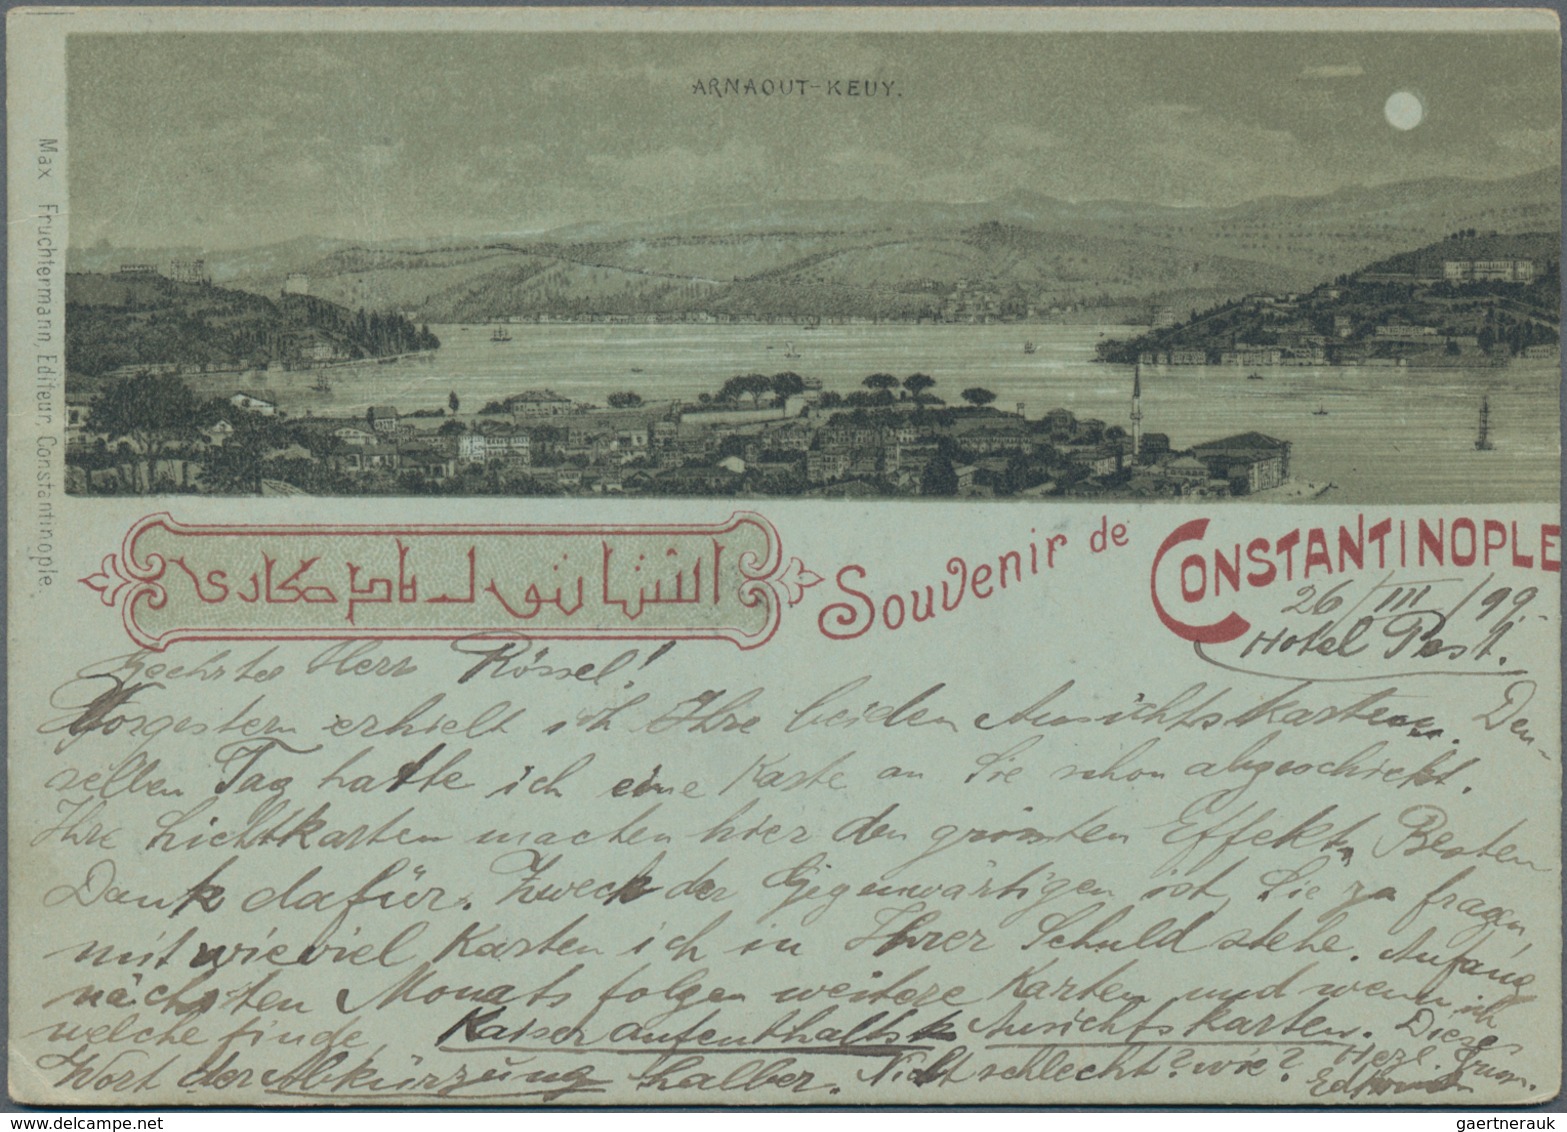 ARNAOUT-KEUY.
Max Fruchtermann, Editeur, Constantinople.
Souvenir de CONSTANTINOPLE
26/III/99.
Hotel Pest.
Geehrter Herr Rössel!
Vorgestern erhielt ich Ihre beiden Ansichtskarten. Den-
selben Tag hatte ich eine Karte an Sie schon abgeschickt.
Ihre Lichtkarten machen hier den grössten Effekt. Besten
Dank dafür. Zweck der Gegenwärtigen ist, Sie zu fragen,
mit wieviel Karten ich in Ihrer Schuld stehe. Anfang
nächsten Monats folgen weitere Karten und wenn ich
welche finde, Kaiseraufenthalts Ansichtskarten. Diese
Wort der Abkürzung halber. Nicht schlecht? wie?
Herzl.
gaertnerauk
gaertnerauk.delcampe.com